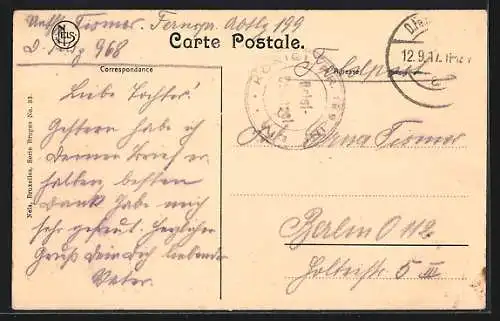 Fernspr. Abtlg 199
968
Carte Postale.
Correspondance
Adresse
12.9.17.
Liebe Tochter!
Gestern habe ich
Deinen Brief er
halten, besten
Dank habe mich
sehr gefreut. Herzlicher
Gruß Dein Dich liebender
Vater.
Erna
Berlin O 112
5 III
Nels, Bruxelles, Serie Bruges No. 33.